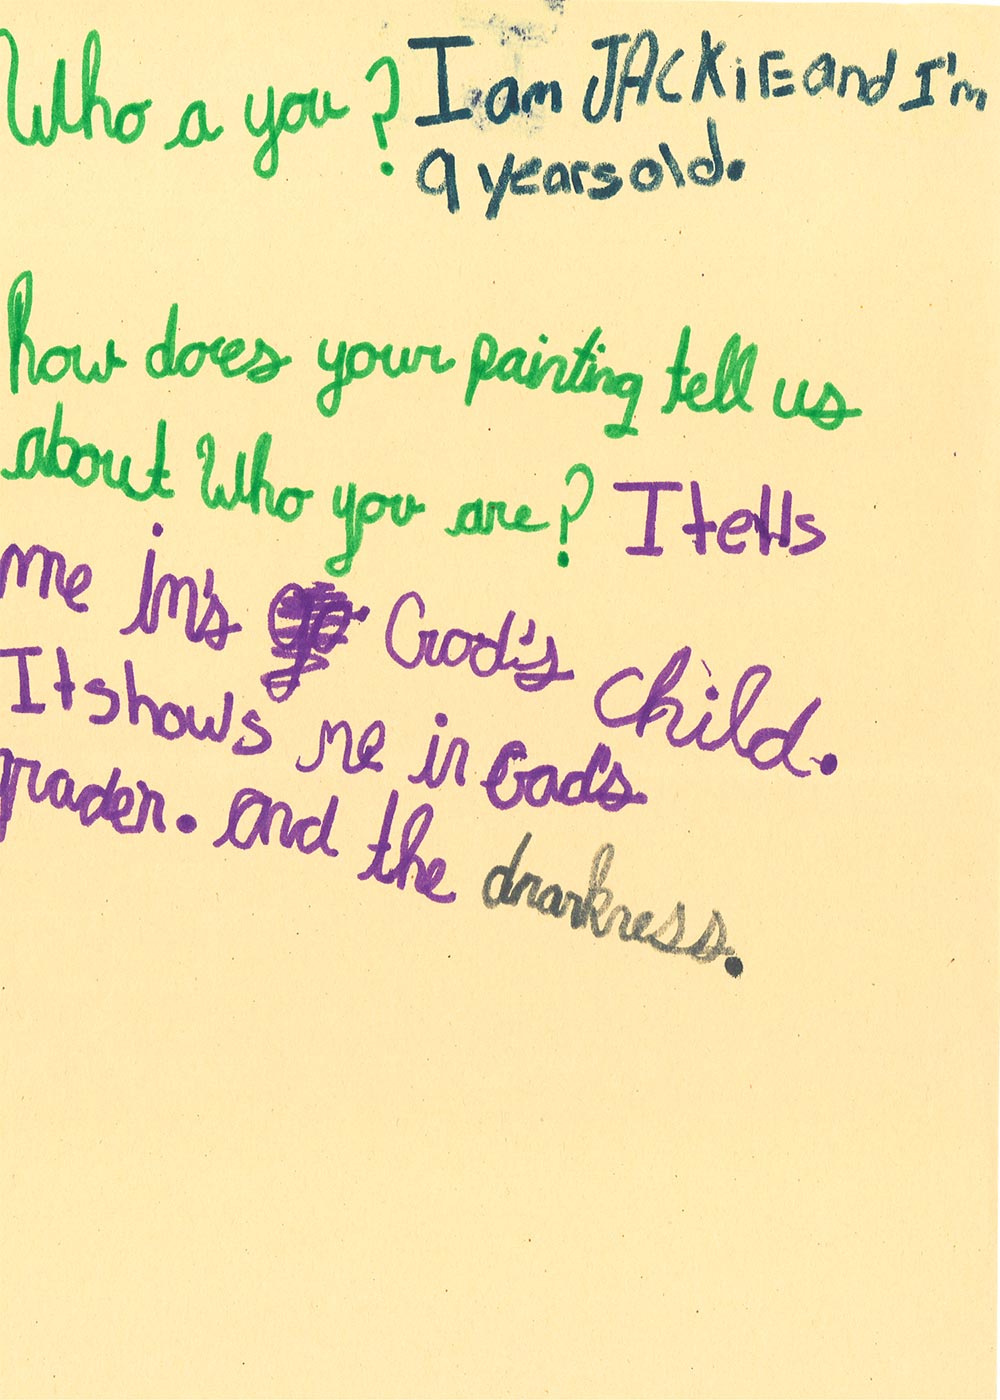 Who a you? I am JACKiE and I'm
9 years old.
how does your painting tell us
about Who you are? I tells
me in's God's child.
It shows me in Gad's
graden. and the
drarkness.